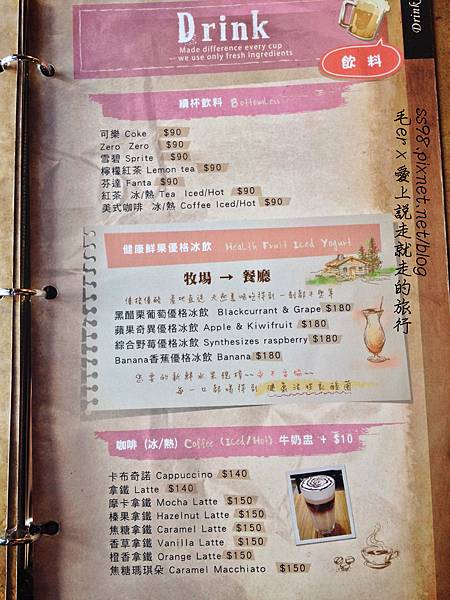 Drink
Made difference every cup
we use only fresh ingredients
飲料
Drink
續杯飲料 Bottomless
可樂 Coke $90
Zero Zero $90
雪碧 Sprite $90
檸檬紅茶 Lemon tea $90
芬達 Fanta $90
紅茶 冰/熱 Tea Iced/Hot $90
美式咖啡 冰/熱 Coffee Iced/Hot $90
健康鮮果優格冰飲 Health Fruit Iced Yogurt
牧場 → 餐廳
黑醋栗葡萄優格冰飲 Blackcurrant & Grape $180
蘋果奇異優格冰飲 Apple & Kiwifruit $180
綜合野莓優格冰飲 Synthesizes raspberry $180
Banana香蕉優格冰飲 Banana $180
您要的新鮮水果現搾~~
每一口都喝得到
咖啡 (冰/熱) Coffee (Iced/Hot) 牛奶盅 + $10
卡布奇諾 Cappuccino $140
拿鐵 Latte $140
摩卡拿鐵 Mocha Latte $150
榛果拿鐵 Hazelnut Latte $150
焦糖拿鐵 Caramel Latte $150
香草拿鐵 Vanilla Latte $150
橙香拿鐵 Orange Latte $150
焦糖瑪琪朵 Caramel Macchiato $150
ss98.pixnet.net/blog
毛er×愛上説走就走的旅行